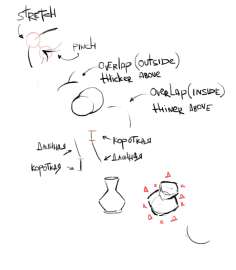 STRETCH
PINCH
OVERLAP (OUTSIDE)
THICKER ABOVE
OVERLAP (INSIDE)
THINER ABOVE
ДЛИННАЯ
КОРОТКАЯ
КОРОТКАЯ
ДЛИННАЯ